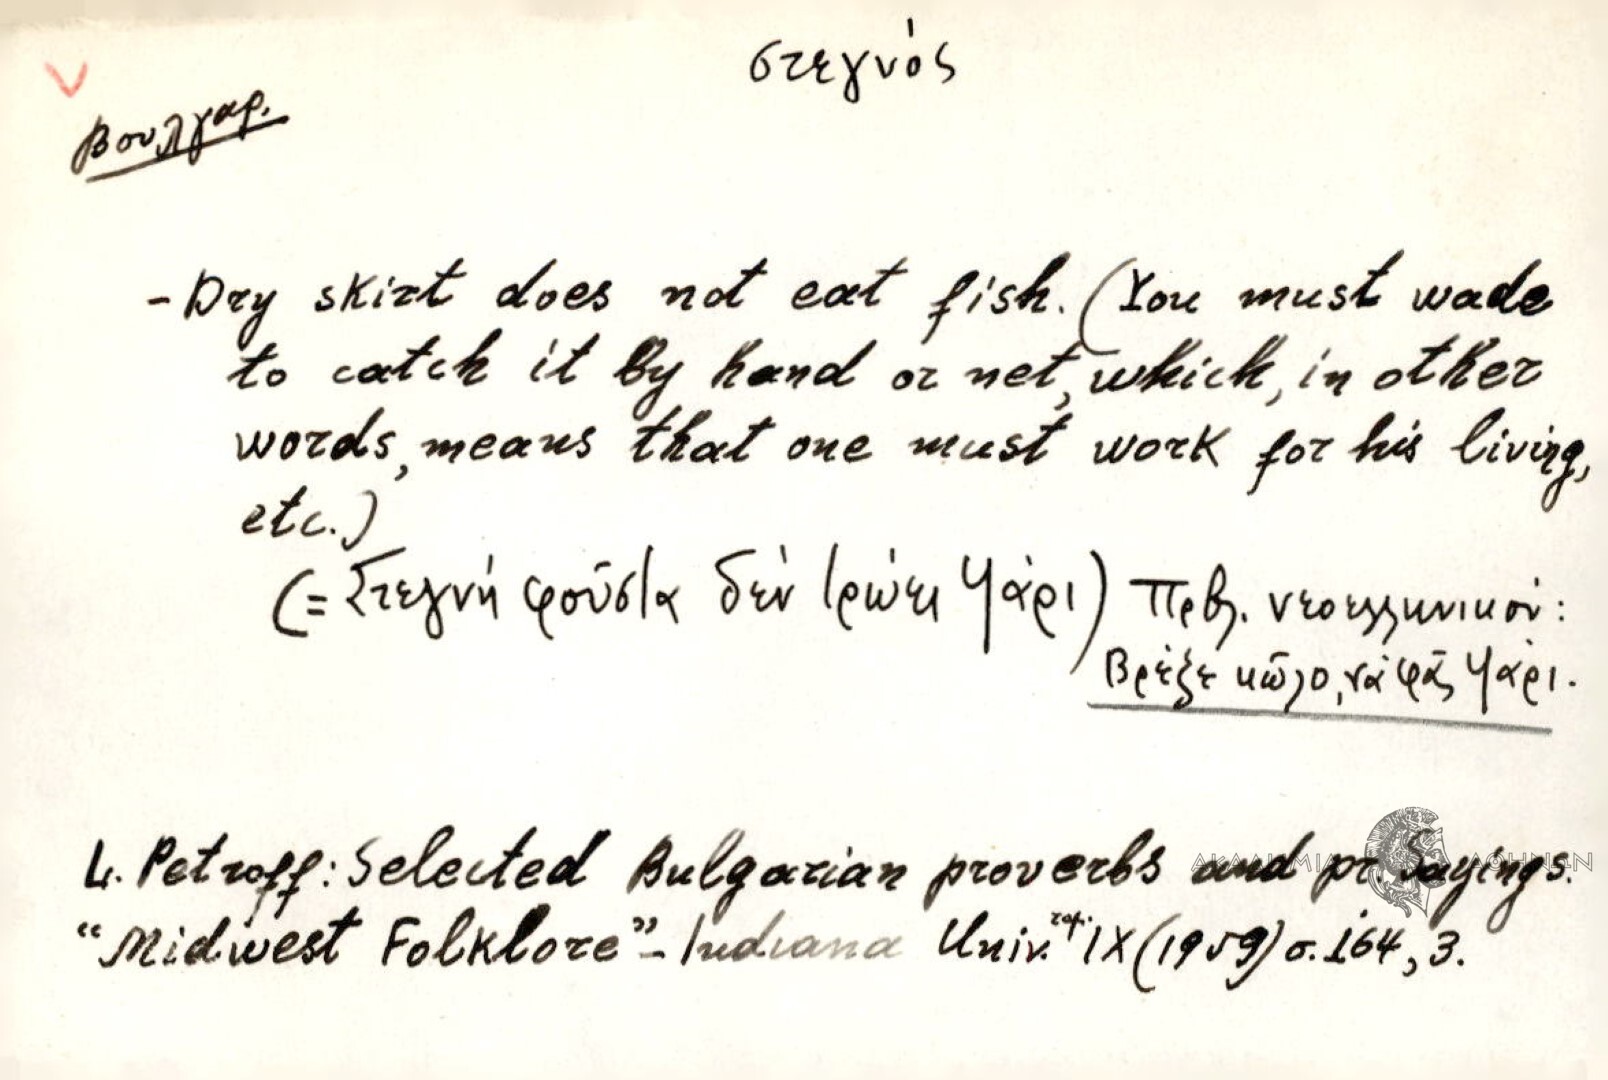 στεγνός
Βουλγαρ.
- Dry skirt does not eat fish. (You must wade
to catch it by hand or net, which, in other
words, means that one must work for his living,
etc.)
(= Στεγνή φούστα δέν τρώει ψάρι) Πρβλ. νεοελληνικόν:
Βρέξε κῶλο, νά φᾶς ψάρι.
L. Petroff: Selected Bulgarian proverbs and pr. Sayings.
"Midwest Folklore" - Indiana Univ. τόμ. IX (1959) σ. 164, 3.
ΑΚΑΔΗΜΙΑ ΑΘΗΝΩΝ